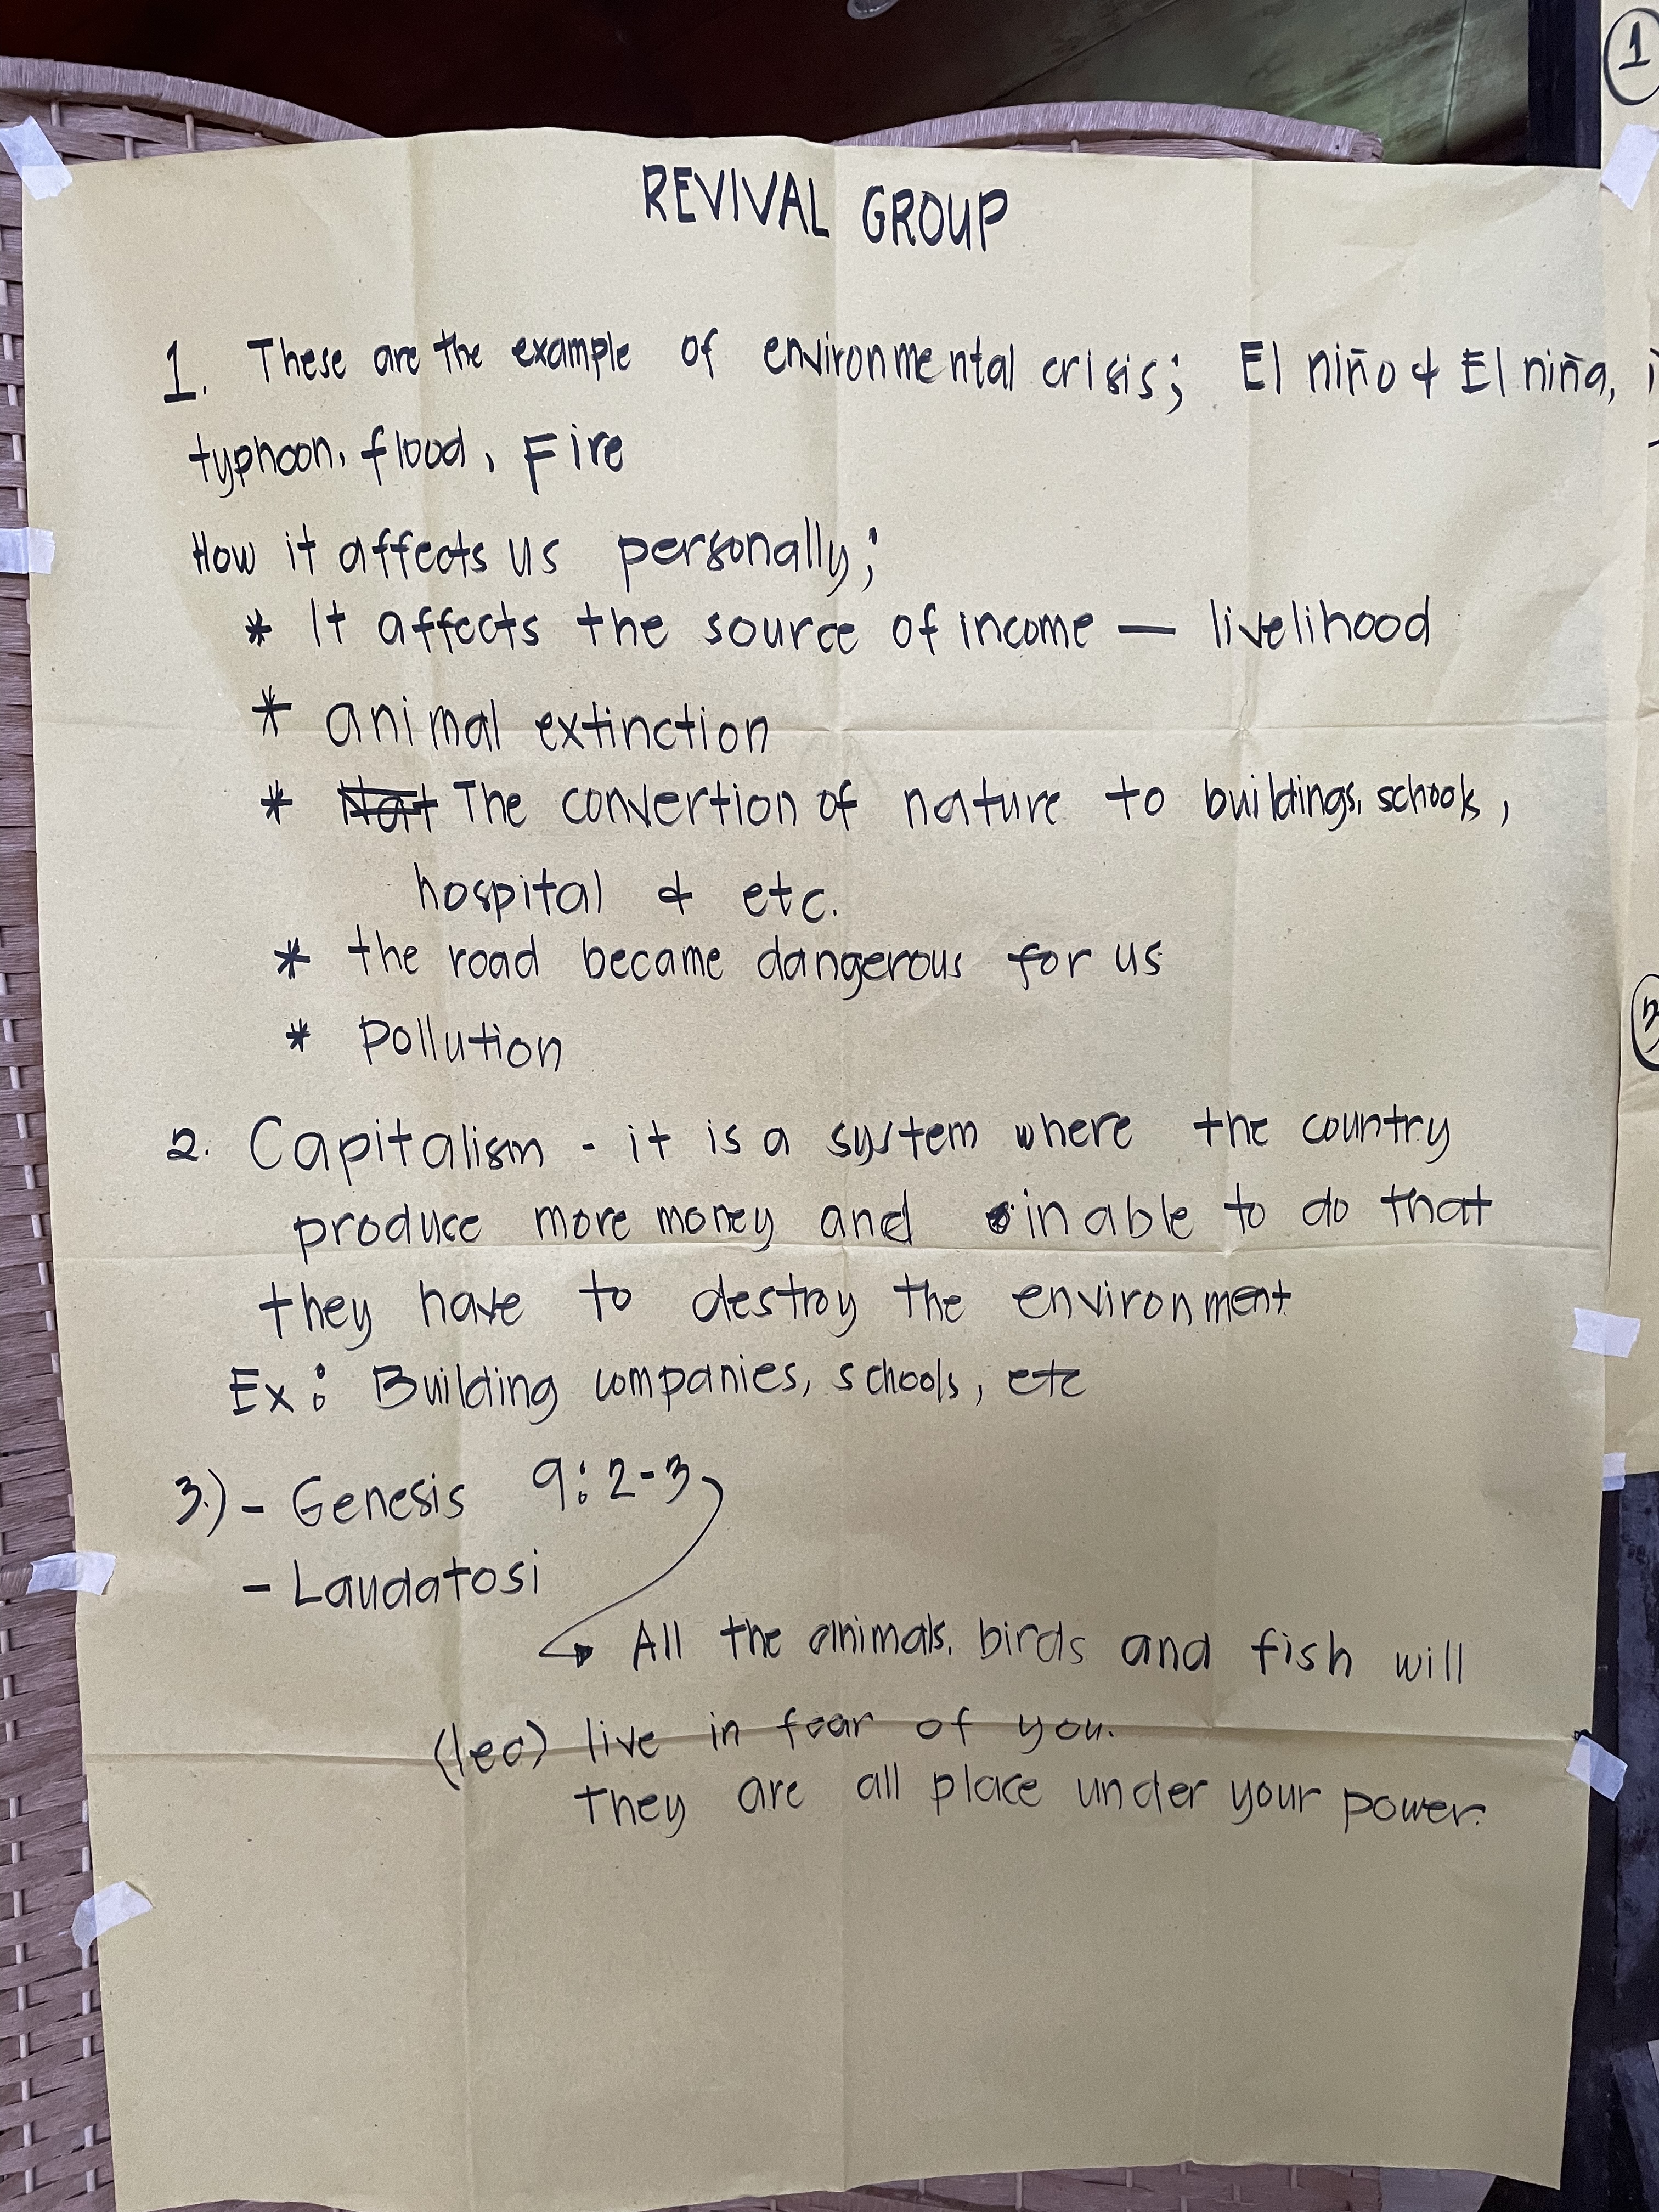 REVIVAL GROUP
1. These are the example of environmental crisis; El niño & El niña,
typhoon, flood, Fire
How it affects us personally;
* It affects the source of income — livelihood
* animal extinction
* Nat The convertion of nature to buildings, schools,
hospital & etc.
* the road became dangerous for us
* Pollution
2. Capitalism - it is a system where the country
produce more money and in able to do that
they have to destroy the environment
Ex: Building companies, schools, etc
3.) - Genesis 9:2-3
- Laudatosi
All the animals, birds and fish will
(leo) live in fear of you.
They are all place under your power.
1